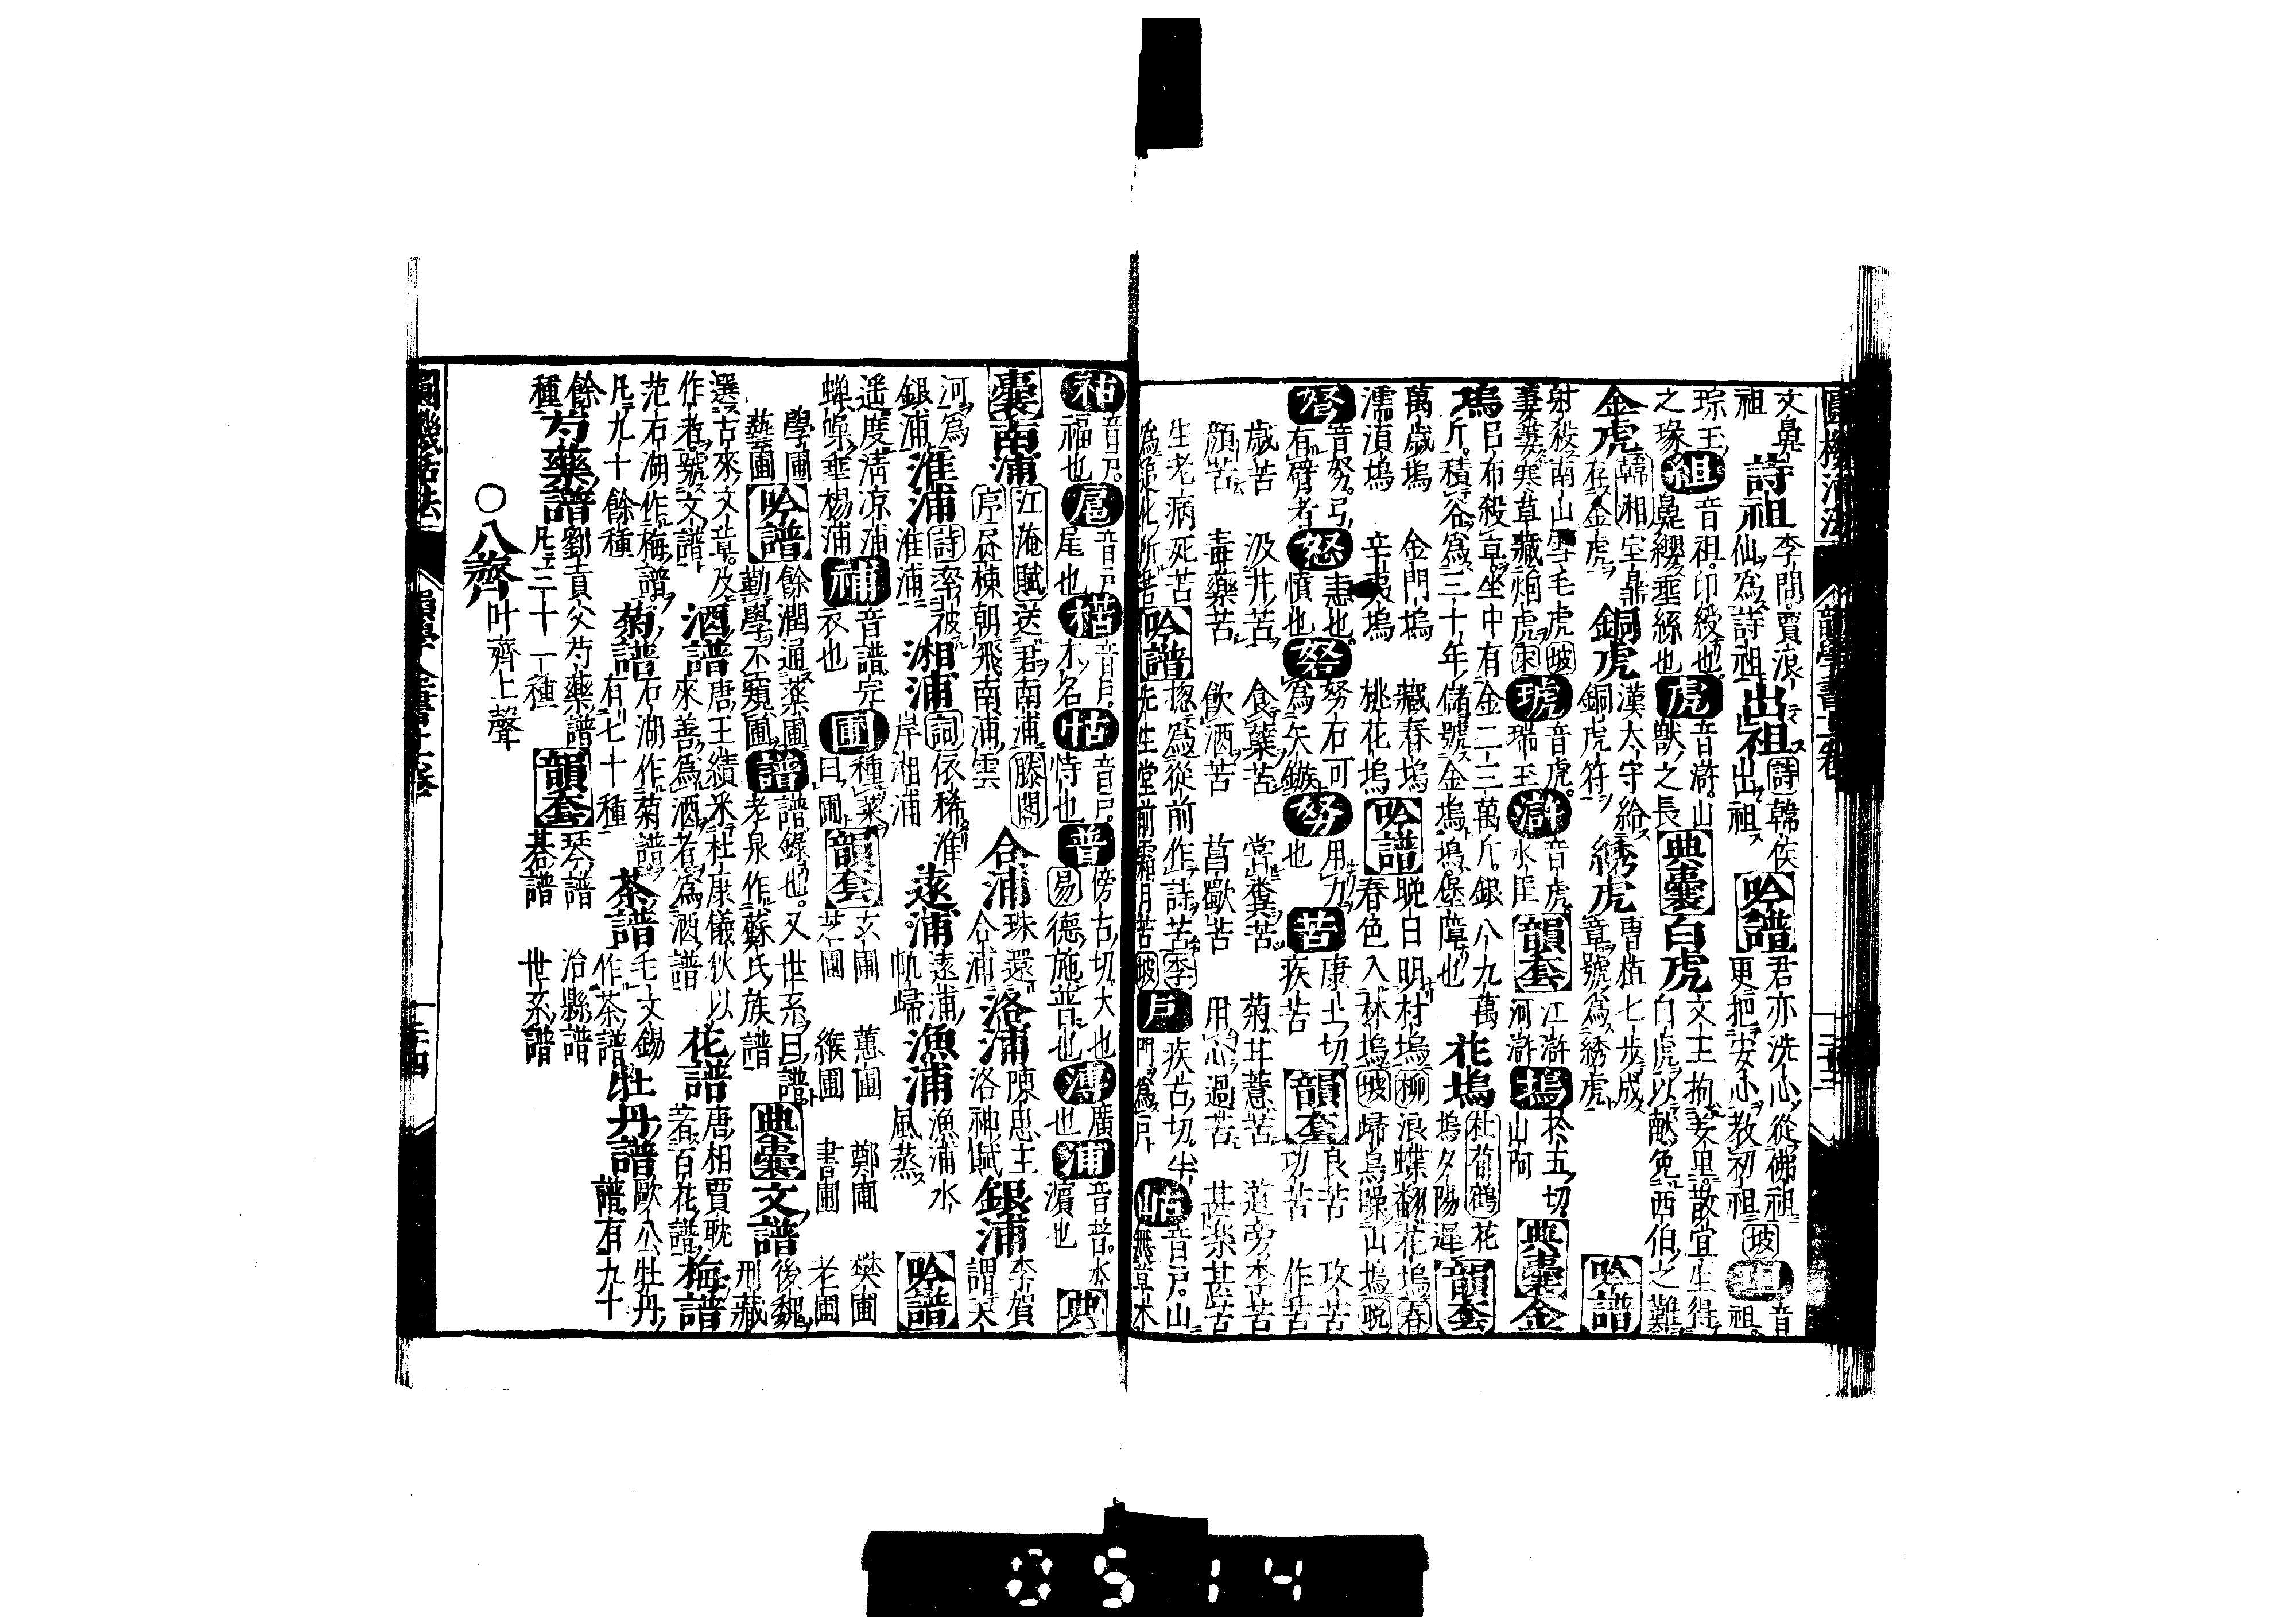 圓機活法 韻學全書十卷 二十三
文鼻祖 詩祖 李問賈浪仙爲詩祖 出祖 詩韓侯出祖 吟譜 君亦洗心從佛祖 更把安心敎初祖坡 珇 音祖
琮玉之瑑 組 音祖印綬也 鼻纓垂絲也 虎 音滸山獸之長 典囊 白虎 文王拘羑里散宜生得白虎以献免西伯之難
金虎 韓相室鼎在金虎 銅虎 漢太守給銅虎符 綉虎 曹植七步成章號爲綉虎 吟譜
射殺南山雪毛虎坡 妻妻寒草藏烟虎 琥 音虎瑞玉 滸 音虎水厓 韻套 江滸 河滸 塢 於五切山阿 典囊 金
塢 呂布殺卓坐中有金二三萬斤銀八九萬斤積谷爲三十年儲號金塢塢堡障也 花塢 杜荀鶴花塢夕陽遲 韻套
萬歲塢 金門塢 藏春塢 濡湏塢 辛夷塢 桃花塢 吟譜 晚白明村塢柳 浪蝶翻花塢春 春色入林塢坡 歸鳥噪山塢晚
砮 音努弓有臂者 怒 恚也憤也 努 努右可爲矢鏃 努 用力也 苦 康土切疾苦 韻套 良苦 攻苦 功苦 作苦
歲苦 汲井苦 食蘗苦 嘗糞苦 菊苴薏苦 道旁李苦 顏苦 毒藥苦 飲酒苦 菖歜苦 用心過苦 甚樂甚苦
生老病死苦 吟譜 揔爲從前作詩苦李 先生堂前霜月苦坡 戶 疾古切半門爲戶 岵 音戶山無草木
祜 音戶福也 扈 音戶尾也 楛 音戶木名 怙 音戶恃也 普 傍古切大也 易德施普也 溥 廣也 浦 音普水濵也 典
囊 南浦 江淹賦送君南浦 滕閣序昼棟朝飛南浦雲 合浦 珠還合浦 洛浦 陳忠王洛神賦 銀浦 李賀謂天
河爲銀浦 淮浦 詩率彼淮浦 湘浦 詞依稀湘岸湘浦 遠浦 遠浦帆歸 漁浦 漁浦水風蒸 吟譜
遥度淸凉浦 蝉噪垂楊浦 補 音譜完衣也 圃 種菜曰圃 韻套 玄圃 蕙圃 鄭圃 樊圃 芝圃 緱圃 書圃 老圃
學圃 藝圃 吟譜 餘潤通藥圃 勤學不窺圃 譜 譜錄也又世系曰譜 老泉作蘇氏族譜 典囊 文譜 後魏刑藏
選古來文章及作者號文譜 酒譜 唐王績釆杜康儀狄以來善爲酒者爲酒譜 花譜 唐相賈耽著百花譜 梅譜
范石湖作梅譜凡九十餘種 菊譜 石湖作菊譜有七十種 茶譜 毛文錫作茶譜 牡丹譜 歐公牡丹譜有九十
餘種 芍藥譜 劉貢父芍藥譜凡三十一種 韻套 琴譜 治縣譜 碁譜 世系譜
〇八薺 叶齊上聲
圓機活法 韻學全書十卷 二十四
0514